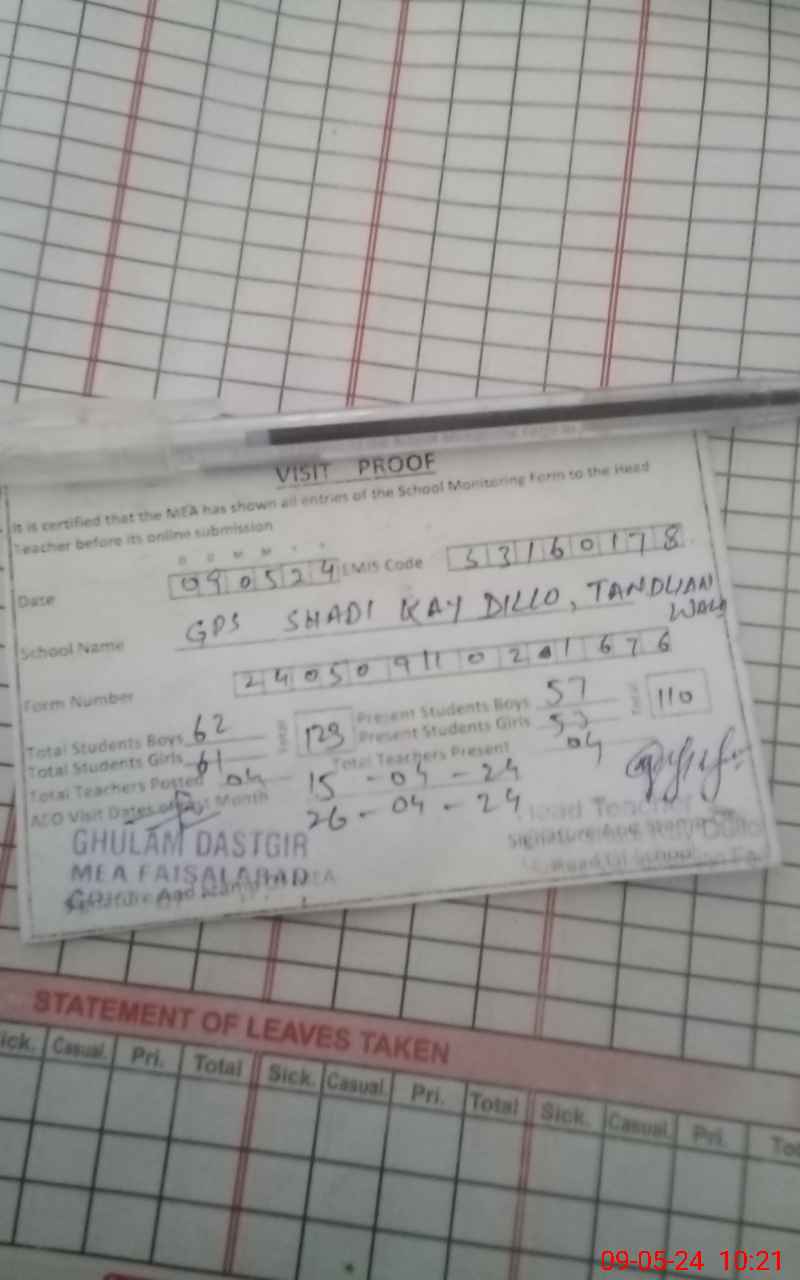 VISIT PROOF
It is certified that the MEA has shown all entries of the School Monitoring Form to the Head
Teacher before its online submission
D D M M Y Y
Date 090524 EMIS Code 33160178
School Name GPS SHADI KAY DILLO, TANDLIAN
WALA
Form Number
Total Students Boys 62 Total 123 Present Students Boys 57 Total 110
Total Students Girls 61 Present Students Girls 53
Total Teachers Posted 04 Total Teachers Present 04
AEO Visit Dates of Last Month 15-04-24
26-04-24
GHULAM DASTGIR
MEA FAISALABAD
Head Teacher
Signature And Stamp
Head Of School
STATEMENT OF LEAVES TAKEN
Sick. Casual. Pri. Total Sick. Casual. Pri. Total Sick. Casual. Pri.
09-05-24 10:21